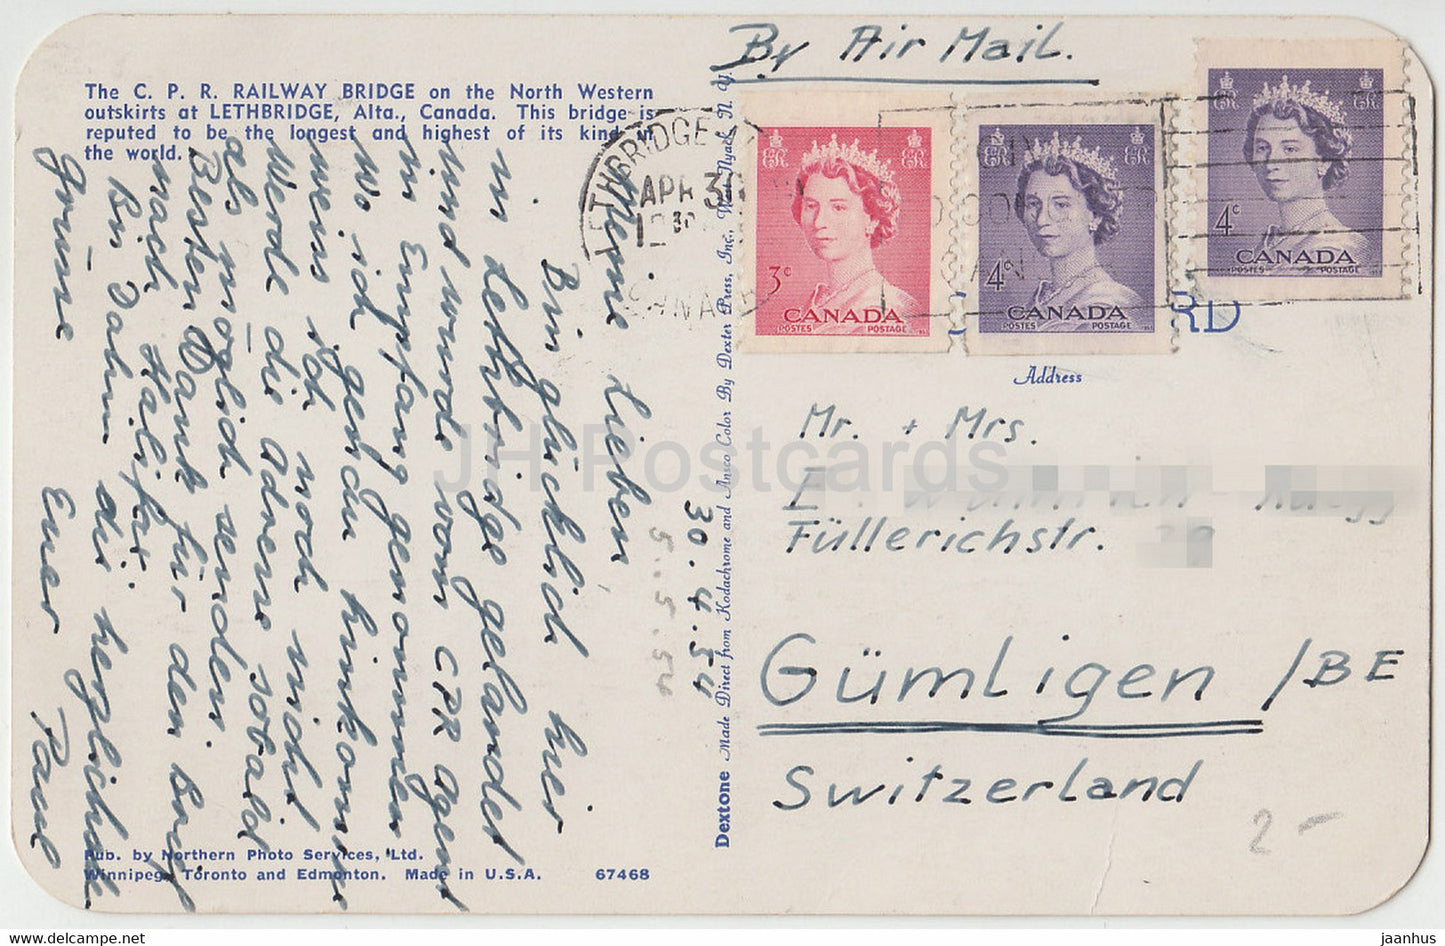 The C. P. R. RAILWAY BRIDGE on the North Western
outskirts at LETHBRIDGE, Alta., Canada. This bridge is
reputed to be the longest and highest of its kind in
the world.
By Air Mail.
LETHBRIDGE
APR 30
30
CANADA
3c
CANADA
POSTES POSTAGE
4c
CANADA
POSTES POSTAGE
4c
CANADA
POSTES POSTAGE
RD
Address
30.4.54
5.5.54
Meine Lieben,
Bin glücklich hier
in Lethbridge gelandet
und wurde vom CPR Agent
in Empfang genommen
Wo ich genau hinkomme
weiss ich noch nicht
Werde die Adresse sobald
als möglich senden.
Besten Dank für den Brief
nach Halifax
Bis dahin die herzlichsten
Grüsse Euer Paul
Dextone Made Direct from Kodachrome and Ansco Color By Dexter Press, Inc., West Nyack, N. Y.
Mr. + Mrs.
E.
Füllerichstr.
Gümligen /BE
Switzerland
2-
Pub. by Northern Photo Services, Ltd.
Winnipeg, Toronto and Edmonton. Made in U.S.A. 67468
JH Postcards
www.delcampe.net
jaanhus